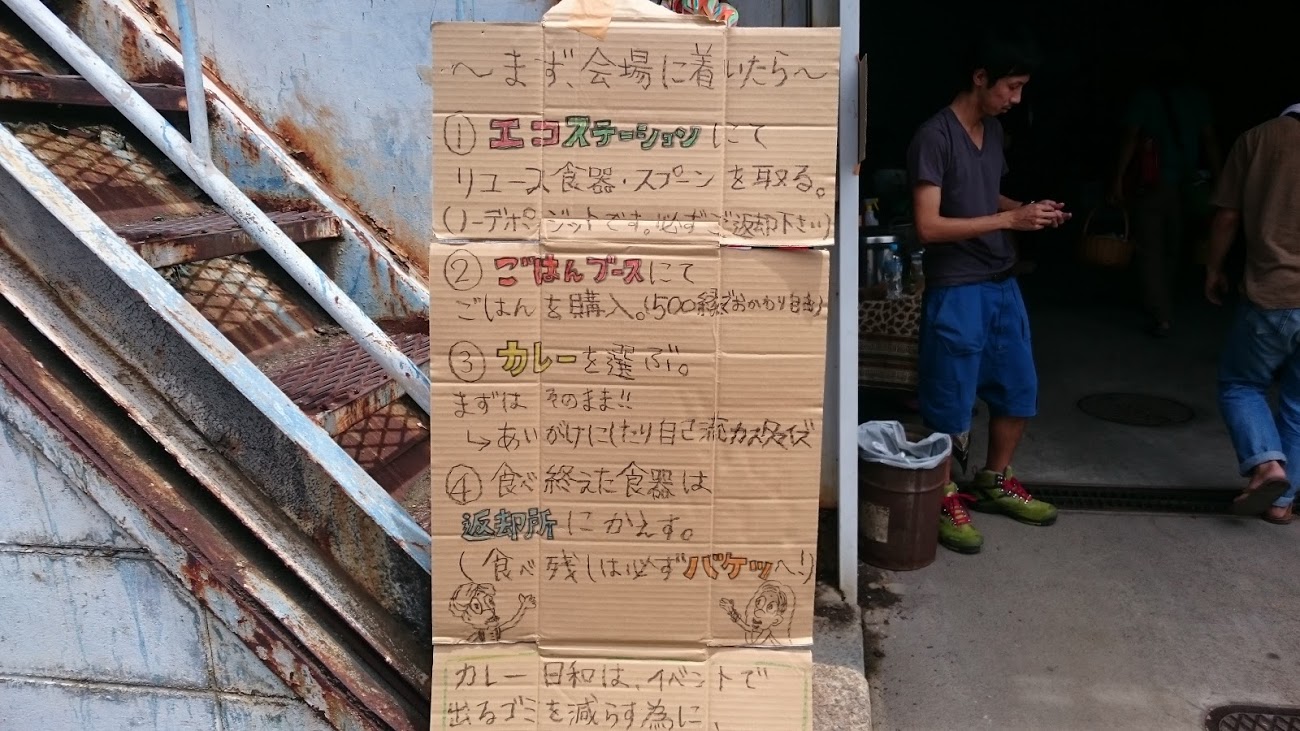 ～まず、会場に着いたら～
① エコステーションにて
リユース食器・スプーンを取る。
(ノーデポジットです。必ずご返却下さい)
② ごはんブースにて
ごはんを購入。(500縁でおかわり自由)
③ カレーを選ぶ。
まずは そのまま!!
↳あいがけにしたり自己流カスタマイズ
④ 食べ終えた食器は
返却所にかえす。
(食べ残しは必ずバケツへ!)
カレー日和は、イベントで
出るゴミを減らす為に、